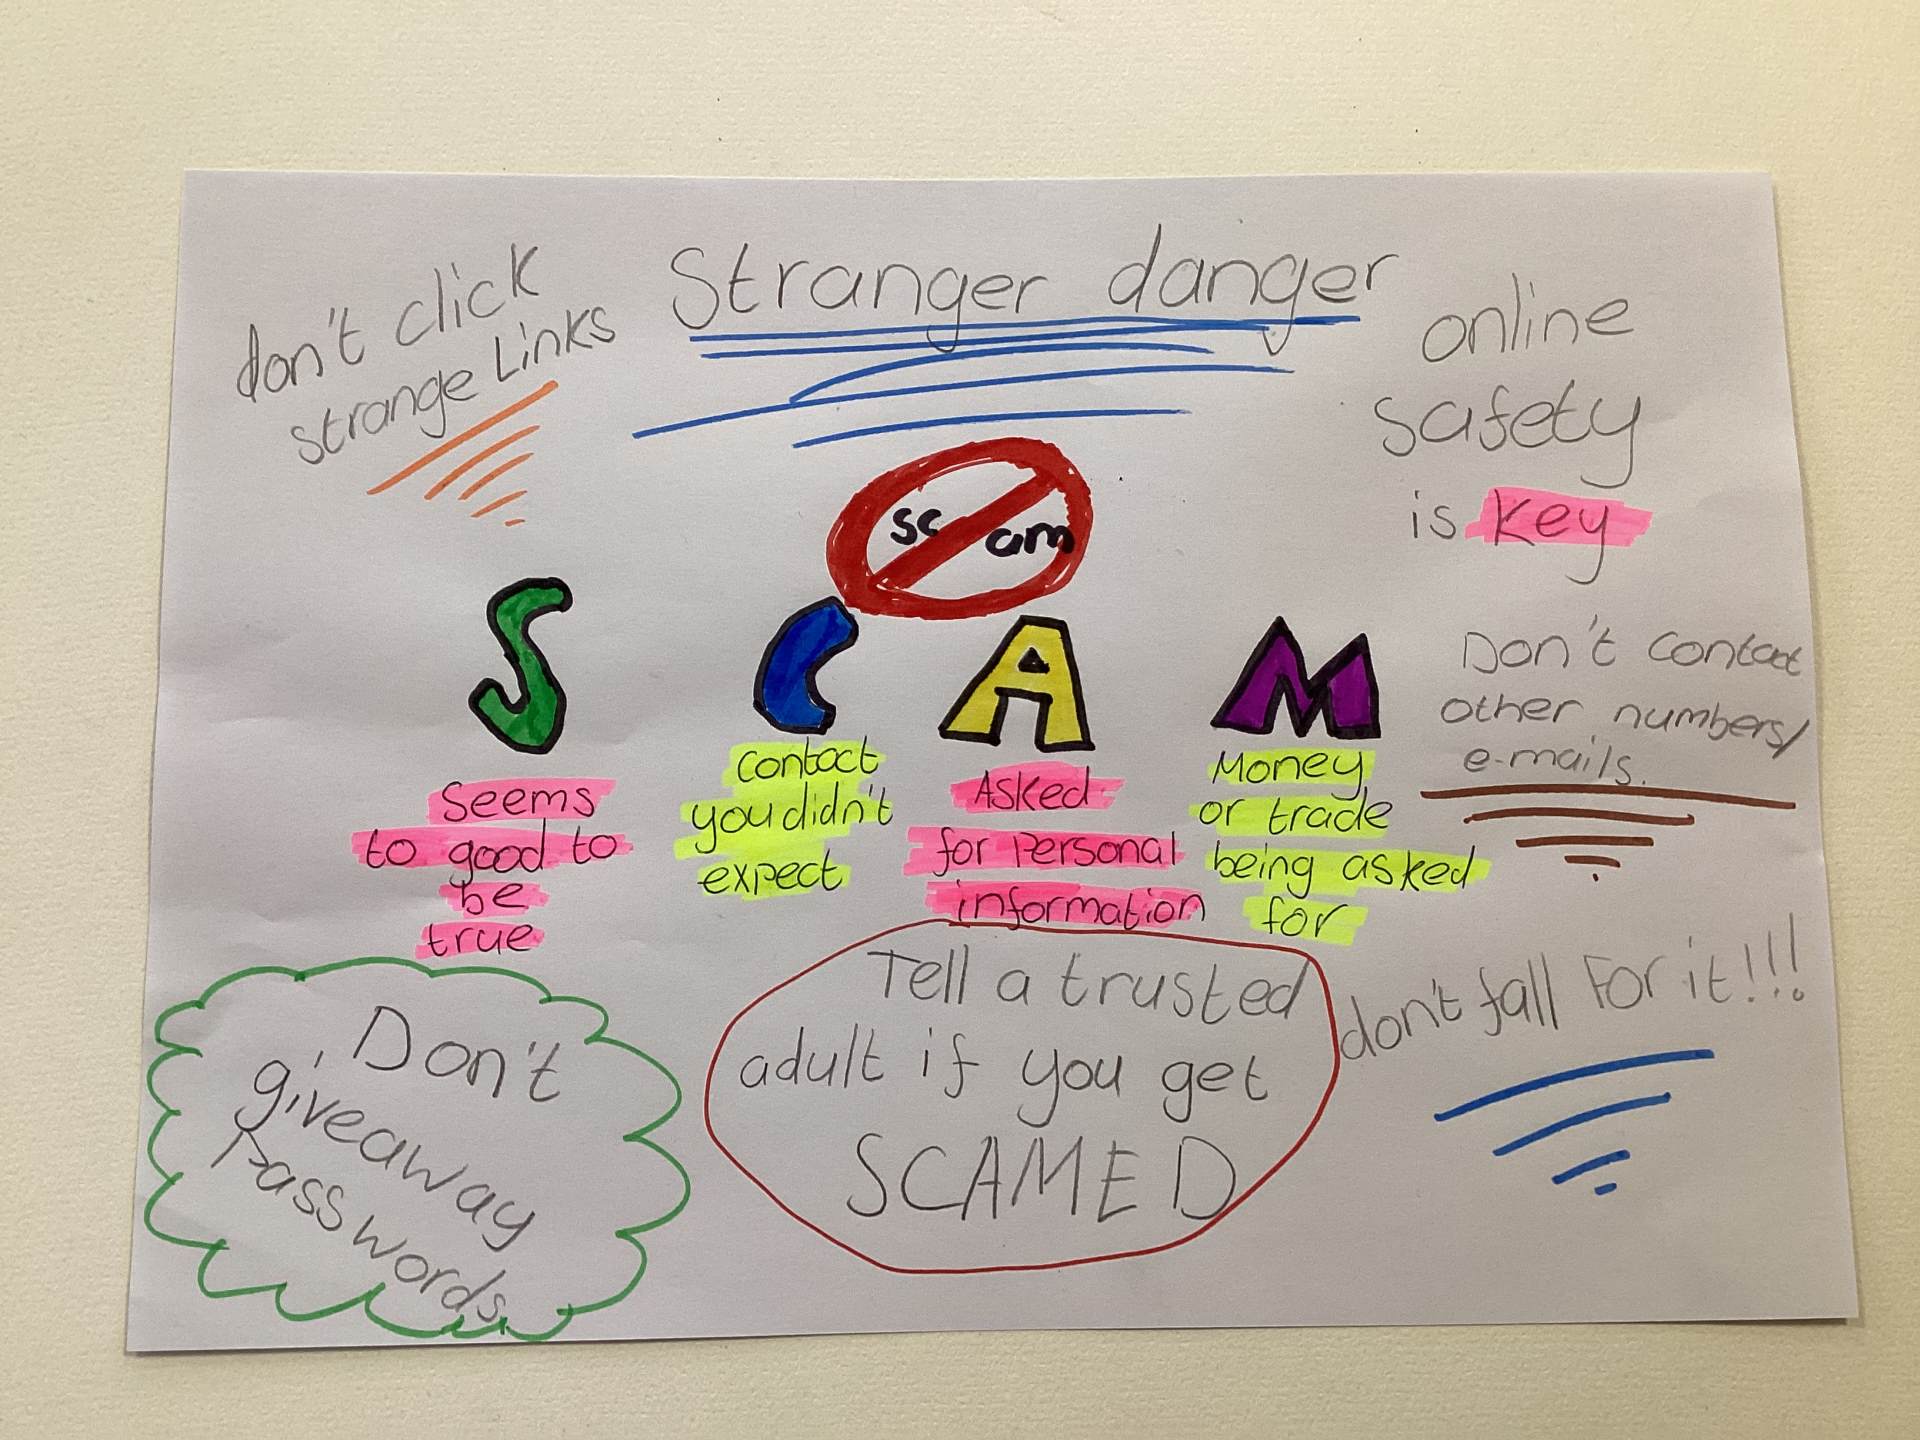 Stranger danger
don't click
strange Links
online
safety
is key
sc am
S C A M
Seems
to good to
be
true
contact
you didn't
expect
Asked
for Personal
information
Money
or trade
being asked
for
Don't contact
other numbers/
e-mails.
Don't
giveaway
Passwords
Tell a trusted
adult if you get
SCAMED
don't fall For it!!!